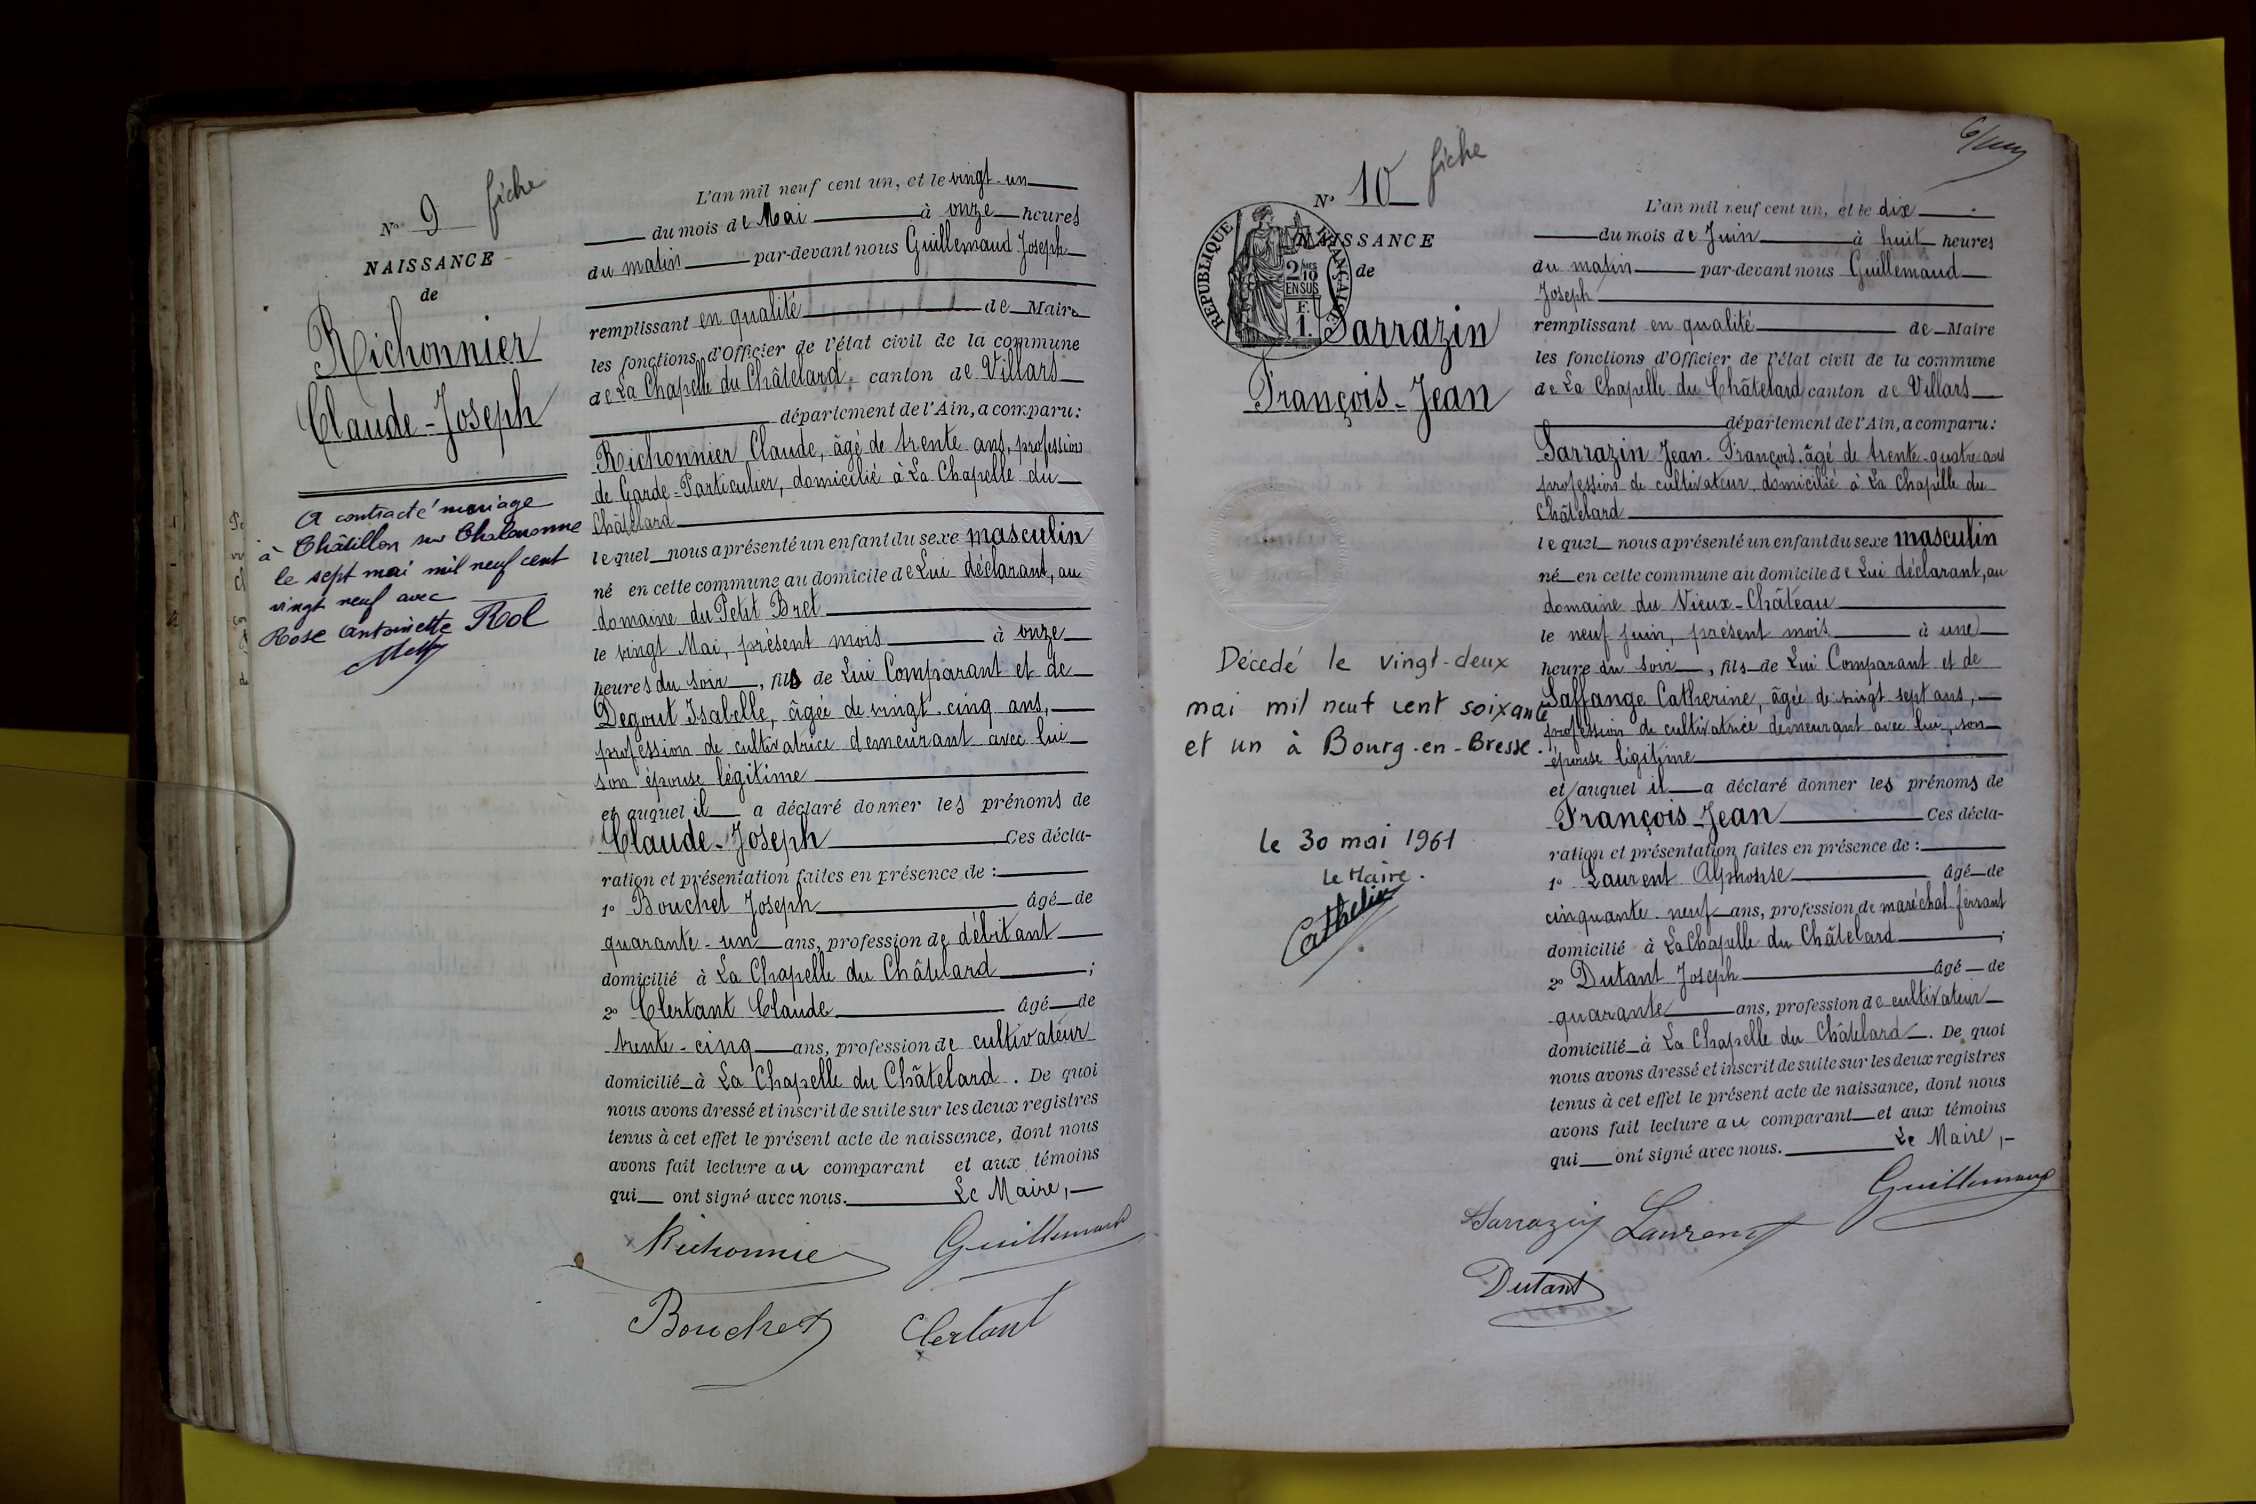 N° 9 fiche
NAISSANCE
de
Richonnier
Claude-Joseph
A contracté mariage
à Châtillon sur Chalaronne
le sept mai mil neuf cent
vingt neuf avec
Rose Antoinette Rol
L'an mil neuf cent un, et le vingt-un
du mois de Mai à onze heures
du matin par-devant nous Guillemaud Joseph
remplissant en qualité de Maire
les fonctions d'Officier de l'état civil de la commune
de La Chapelle du Châtelard, canton de Villars
département de l'Ain, a comparu:
Richonnier Claude, âgé de trente ans, profession
de Garde-Particulier, domicilié à La Chapelle du
Châtelard
lequel nous a présenté un enfant du sexe masculin
né en cette commune au domicile de Lui déclarant, au
domaine du Petit Bret
le vingt Mai, présent mois à onze
heures du soir, fils de Lui Comparant et de
Degout Isabelle, âgée de vingt-cinq ans,
profession de cultivatrice demeurant avec lui
son épouse légitime
et auquel il a déclaré donner les prénoms de
Claude-Joseph Ces décla-
ration et présentation faites en présence de :
1° Bouchet Joseph âgé de
quarante-un ans, profession de débitant
domicilié à La Chapelle du Châtelard ;
2° Clertant Claude âgé de
trente-cinq ans, profession de cultivateur
domicilié à La Chapelle du Châtelard. De quoi
nous avons dressé et inscrit de suite sur les deux registres
tenus à cet effet le présent acte de naissance, dont nous
avons fait lecture au comparant et aux témoins
qui ont signé avec nous. Le Maire,
Richonnie Guillemaud
Bouchet Clertant
N° 10 fiche
RÉPUBLIQUE FRANÇAISE
2/10 EN SUS
F. 1.
NAISSANCE
de
Sarrazin
François-Jean
Décédé le vingt-deux
mai mil neuf cent soixante
et un à Bourg-en-Bresse.
le 30 mai 1961
Le Maire.
Cathelin
L'an mil neuf cent un, et le dix
du mois de Juin à huit heures
du matin par-devant nous Guillemaud
Joseph
remplissant en qualité de Maire
les fonctions d'Officier de l'état civil de la commune
de La Chapelle du Châtelard canton de Villars
département de l'Ain, a comparu:
Sarrazin Jean-François, âgé de trente-quatre ans
profession de cultivateur domicilié à La Chapelle du
Châtelard
lequel nous a présenté un enfant du sexe masculin
né en cette commune au domicile de Lui déclarant, au
domaine du Vieux-Château
le neuf Juin, présent mois à une
heure du soir, fils de Lui Comparant et de
Laffange Catherine, âgée de vingt sept ans,
profession de cultivatrice demeurant avec lui, son
épouse légitime
et auquel il a déclaré donner les prénoms de
François-Jean Ces décla-
ration et présentation faites en présence de :
1° Laurent Alphonse âgé de
cinquante-neuf ans, profession de maréchal ferrant
domicilié à La Chapelle du Châtelard ;
2° Dutant Joseph âgé de
quarante ans, profession de cultivateur
domicilié à La Chapelle du Châtelard. De quoi
nous avons dressé et inscrit de suite sur les deux registres
tenus à cet effet le présent acte de naissance, dont nous
avons fait lecture au comparant et aux témoins
qui ont signé avec nous. Le Maire,
Guillemaud
Sarrazin Laurent
Dutant